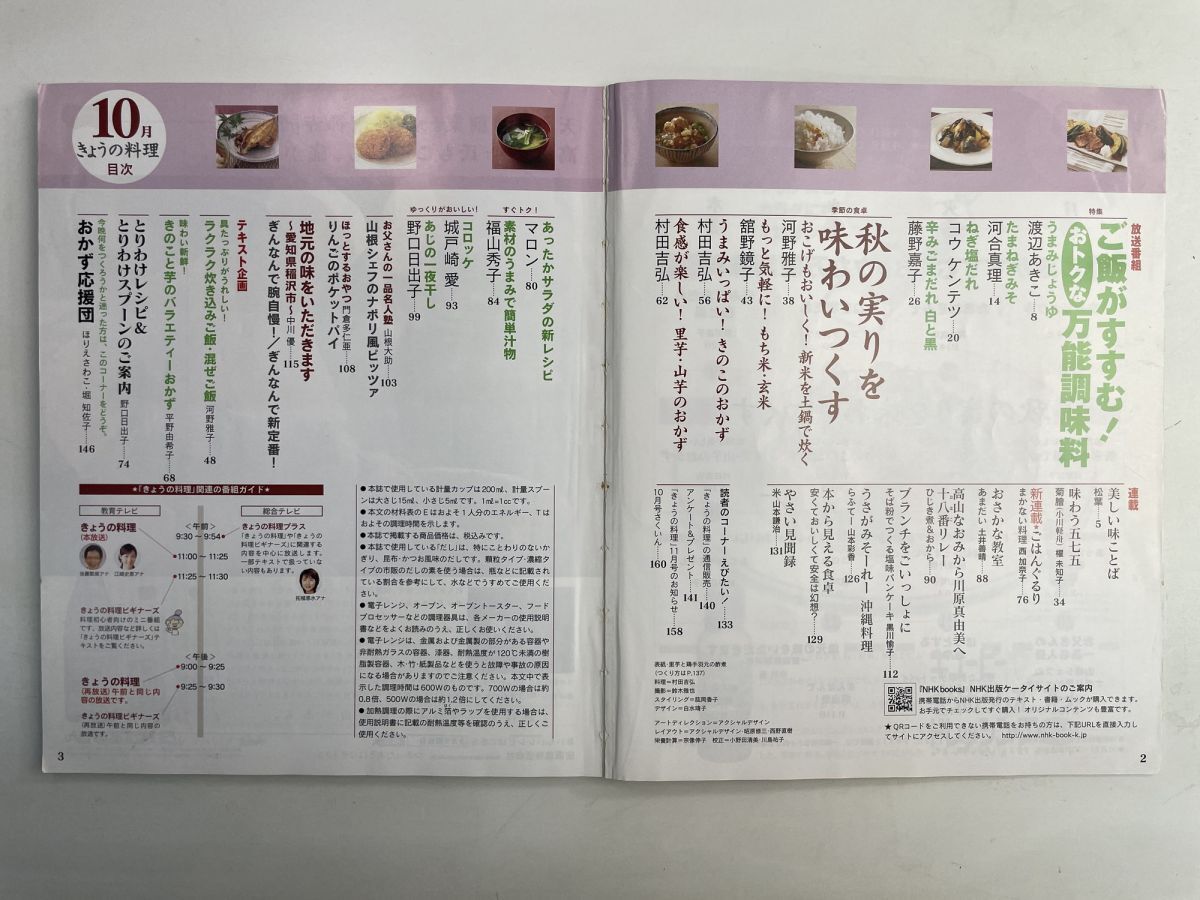 放送番組
特集
ご飯がすすむ!
おトクな万能調味料
うまみじょうゆ
渡辺あきこ……8
たまねぎみそ
河合真理……14
ねぎ塩だれ
コウ ケンテツ……20
辛みごまだれ 白と黒
藤野嘉子……26
季節の食卓
秋の実りを
味わいつくす
おこげもおいしく!新米を土鍋で炊く
河野雅子……38
もっと気軽に!もち米・玄米
舘野鏡子……43
うまみいっぱい!きのこのおかず
村田吉弘……56
食感が楽しい!里芋・山芋のおかず
村田吉弘……62
連載
美しい味ことば
松葉……5
味わう五七五
菊膾(小川軽舟) 櫂 未知子……34
新連載★ごはんぐるり
まかない料理 西 加奈子……76
おさかな教室
あまだい 土井善晴……88
高山なおみから川原真由美へ
十八番リレー
ひじき煮&おから……90
ブランチをごいっしょに
そば粉でつくる塩味パンケーキ 黒川愉子……112
うさがみそーれー 沖縄料理
らふてー 山本彩香……126
本から見える食卓
安くておいしくて安全は幻想?……129
やさい見聞録
米 山本謙治……131
読者のコーナー えぴたい!……133
「きょうの料理」の通信販売……140
アンケート&プレゼント……141
「きょうの料理」11月号のお知らせ……158
10月号さくいん……160
表紙・里芋と鶏手羽元の酢煮
(つくり方はP.137)
料理=村田吉弘
撮影=鈴木雅也
スタイリング=高岡香子
デザイン=白水靖子
アートディレクション=アクシャルデザイン
レイアウト=アクシャルデザイン・蛭原修三・西野直樹
栄養計算=宗像伸子 校正=小野田清美・川島祐子
『NHKbooks』 NHK出版ケータイサイトのご案内
携帯電話からNHK出版発行のテキスト・書籍・ムックが購入できます。
お手元でチェックしてすぐ購入! オリジナルコンテンツも豊富です。
★QRコードをご利用できない携帯電話をお持ちの方は、下記URLを直接入力し
てサイトにアクセスしてください。 http://www.nhk-book-k.jp
2
10月
きょうの料理
目次
あったかサラダの新レシピ
マロン……80
すぐトク!
素材のうまみで簡単汁物
福山秀子……84
ゆっくりがおいしい!
コロッケ
城戸崎 愛……93
あじの一夜干し
野口日出子……99
お父さんの一品名人塾 山根大助……103
山根シェフのナポリ風ピッツァ
ほっとするおやつ 門倉多仁亜……108
りんごのポケットパイ
地元の味をいただきます
〜愛知県稲沢市〜 中川 優……115
ぎんなんで腕自慢!/ぎんなんで新定番!
テキスト企画
具たっぷりがうれしい!
ラクラク炊き込みご飯・混ぜご飯 河野雅子……48
味わい新鮮!
きのこと芋のバラエティーおかず 平野由希子……68
とりわけレシピ&
とりわけスプーンのご案内 野口日出子……74
今晩何をつくろうかと迷った方は、このコーナーをどうぞ。
おかず応援団 ほりえさわこ・堀 知佐子……146
★「きょうの料理」関連の番組ガイド★
教育テレビ
総合テレビ
きょうの料理
(本放送)
後藤繁榮アナ
江崎史恵アナ
<午前>
9:30 〜 9:54
11:00 〜 11:25
11:25 〜 11:30
きょうの料理プラス
「きょうの料理」や「きょうの料理ビギナーズ」に関連する内容を中心に放送します。一部テキストで扱っていない内容もあります。
拓植恵水アナ
きょうの料理ビギナーズ
料理初心者向けのミニ番組です。放送内容など詳しくは「きょうの料理ビギナーズ」テキストをご覧ください。
<午後>
9:00 〜 9:25
9:25 〜 9:30
きょうの料理
(再放送)午前と同じ内容の放送です。
きょうの料理ビギナーズ
(再放送)午前と同じ内容の放送です。
●本誌で使用している計量カップは200㎖、計量スプーンは大さじ15㎖、小さじ5㎖です。1㎖=1ccです。
●本文の材料表のEはおよそ1人分のエネルギー、Tはおよその調理時間を示します。
●本誌で掲載する商品価格は、税込みです。
●本誌で使用している「だし」は、特にことわりのないかぎり、昆布・かつお風味のだしです。顆粒タイプ・濃縮タイプの市販のだしの素を使う場合は、瓶などに記載されている割合を参考にして、水などでうすめてご使用ください。
●電子レンジ、オーブン、オーブントースター、フードプロセッサーなどの調理器具は、各メーカーの使用説明書などをよくお読みのうえ、正しくお使いください。
●電子レンジは、金属および金属製の部分がある容器や非耐熱ガラスの容器、漆器、耐熱温度が120℃未満の樹脂製容器、木・竹・紙製品などを使うと故障や事故の原因になる場合がありますのでご注意ください。本文中で表示した調理時間は600Wのものです。700Wの場合は約0.8倍、500Wの場合は約1.2倍にしてください。
●加熱調理の際にアルミ箔やラップを使用する場合は、使用説明書に記載の耐熱温度等を確認のうえ、正しくご使用ください。
3